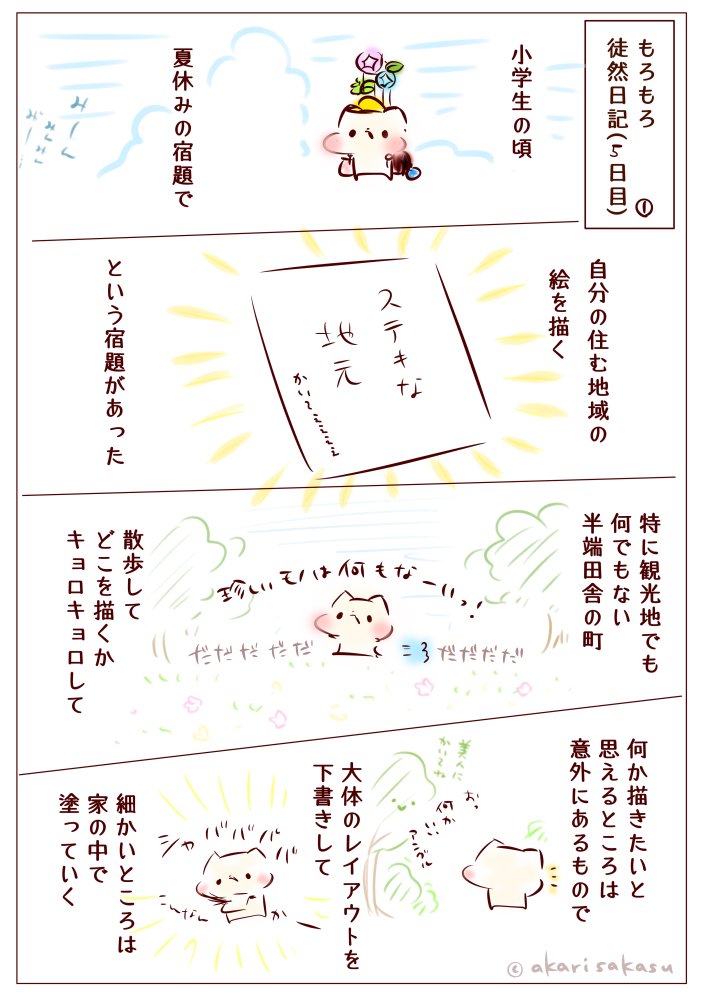 もろもろ
徒然日記(5日目)
①
小学生の頃
夏休みの宿題で
みーん
みーん
みーん
自分の住む地域の
絵を描く
ステキな
地元
かいてぇぇぇぇぇ
という宿題があった
特に観光地でも
何でもない
半端田舎の町
珍しいモノは何もなーいっ!
だだだだだ
だだだだだ
散歩して
どこを描くか
キョロキョロして
何か描きたいと
思えるところは
意外にあるもので
美人に
かいてね
おっ
何か
いい
アングル
大体のレイアウトを
下書きして
シャバババババ
こんなん
か
細かいところは
家の中で
塗っていく
© akarisakasu